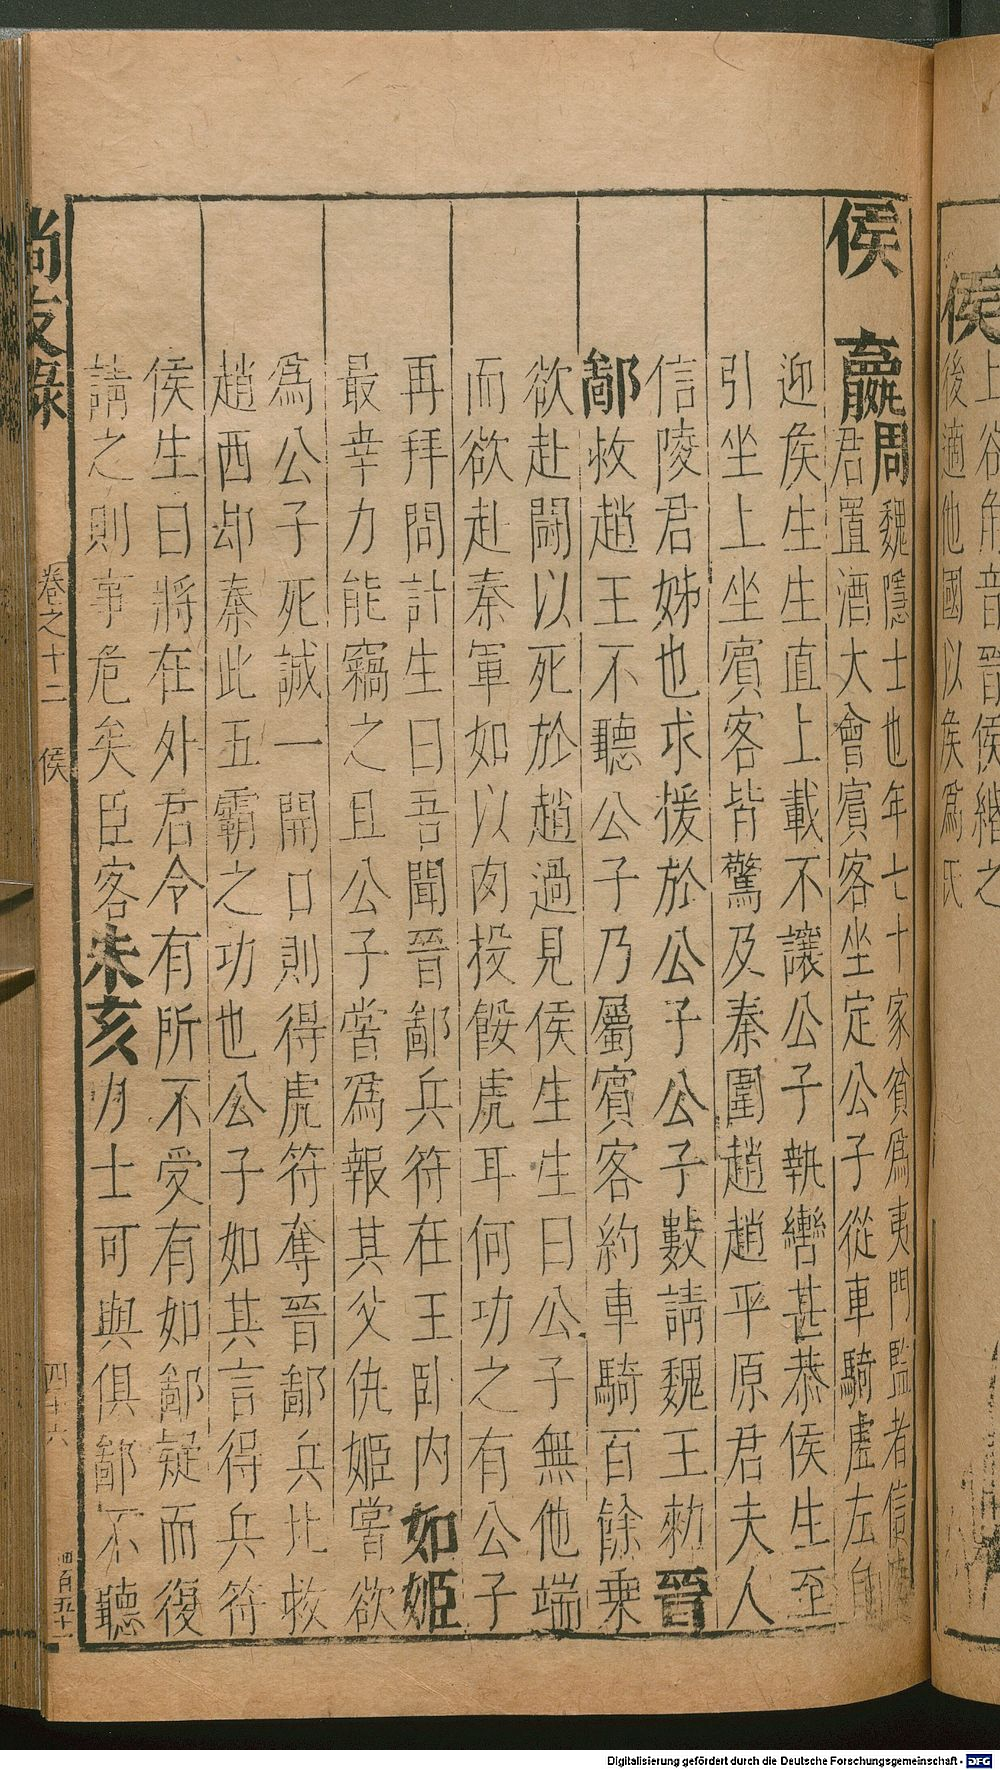 上谷角音晉侯緡之
侯後適他國以矦爲氏
侯嬴周魏隱士也年七十家貧爲夷門監者信陵
君置酒大會賓客坐定公子從車騎虛左自
迎矦生生直上載不讓公子執轡甚恭侯生至
引坐上坐賓客皆驚及秦圍趙趙平原君夫人
信陵君姊也求援於公子公子數請魏王勑晉
鄙救趙王不聽公子乃屬賓客約車騎百餘乗
欲赴鬬以死於趙過見侯生生曰公子無他端
而欲赴秦軍如以肉投餒虎耳何功之有公子
再拜問計生曰吾聞晉鄙兵符在王卧内如姬
最幸力能竊之且公子嘗爲報其父仇姬嘗欲
爲公子死誠一開口則得虎符奪晉鄙兵北救
趙西却秦此五霸之功也公子如其言得兵符
侯生曰將在外君令有所不受有如鄙疑而復
請之則事危矣臣客朱亥力士可與俱鄙不聽
尚友錄 卷之十二 侯 四十六